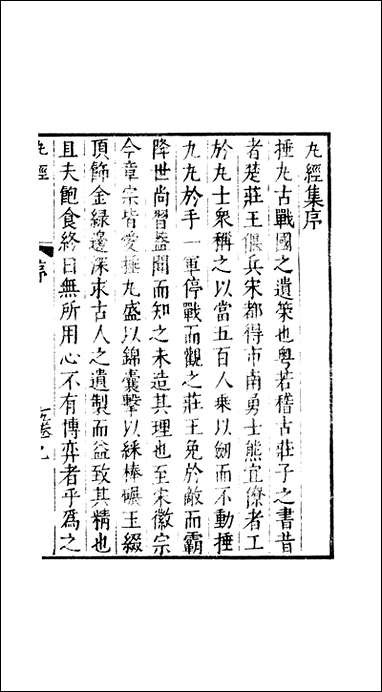 丸經集序
捶丸古戰國之遺策也粤若稽古莊子之書昔
者楚莊王偃兵宋都得市南勇士熊宜僚者工
於丸士衆稱之以當五百人乘以劒而不動捶
九丸於手一軍停戰而觀之莊王免於敵而霸
降世尚習葢聞而知之未造其理也至宋徽宗
今章宗皆愛捶丸盛以錦囊擊以綵棒碾玉綴
頂飾金緑邊深求古人之遺製而益致其精也
且夫飽食終日無所用心不有博弈者乎爲之
丸經
序